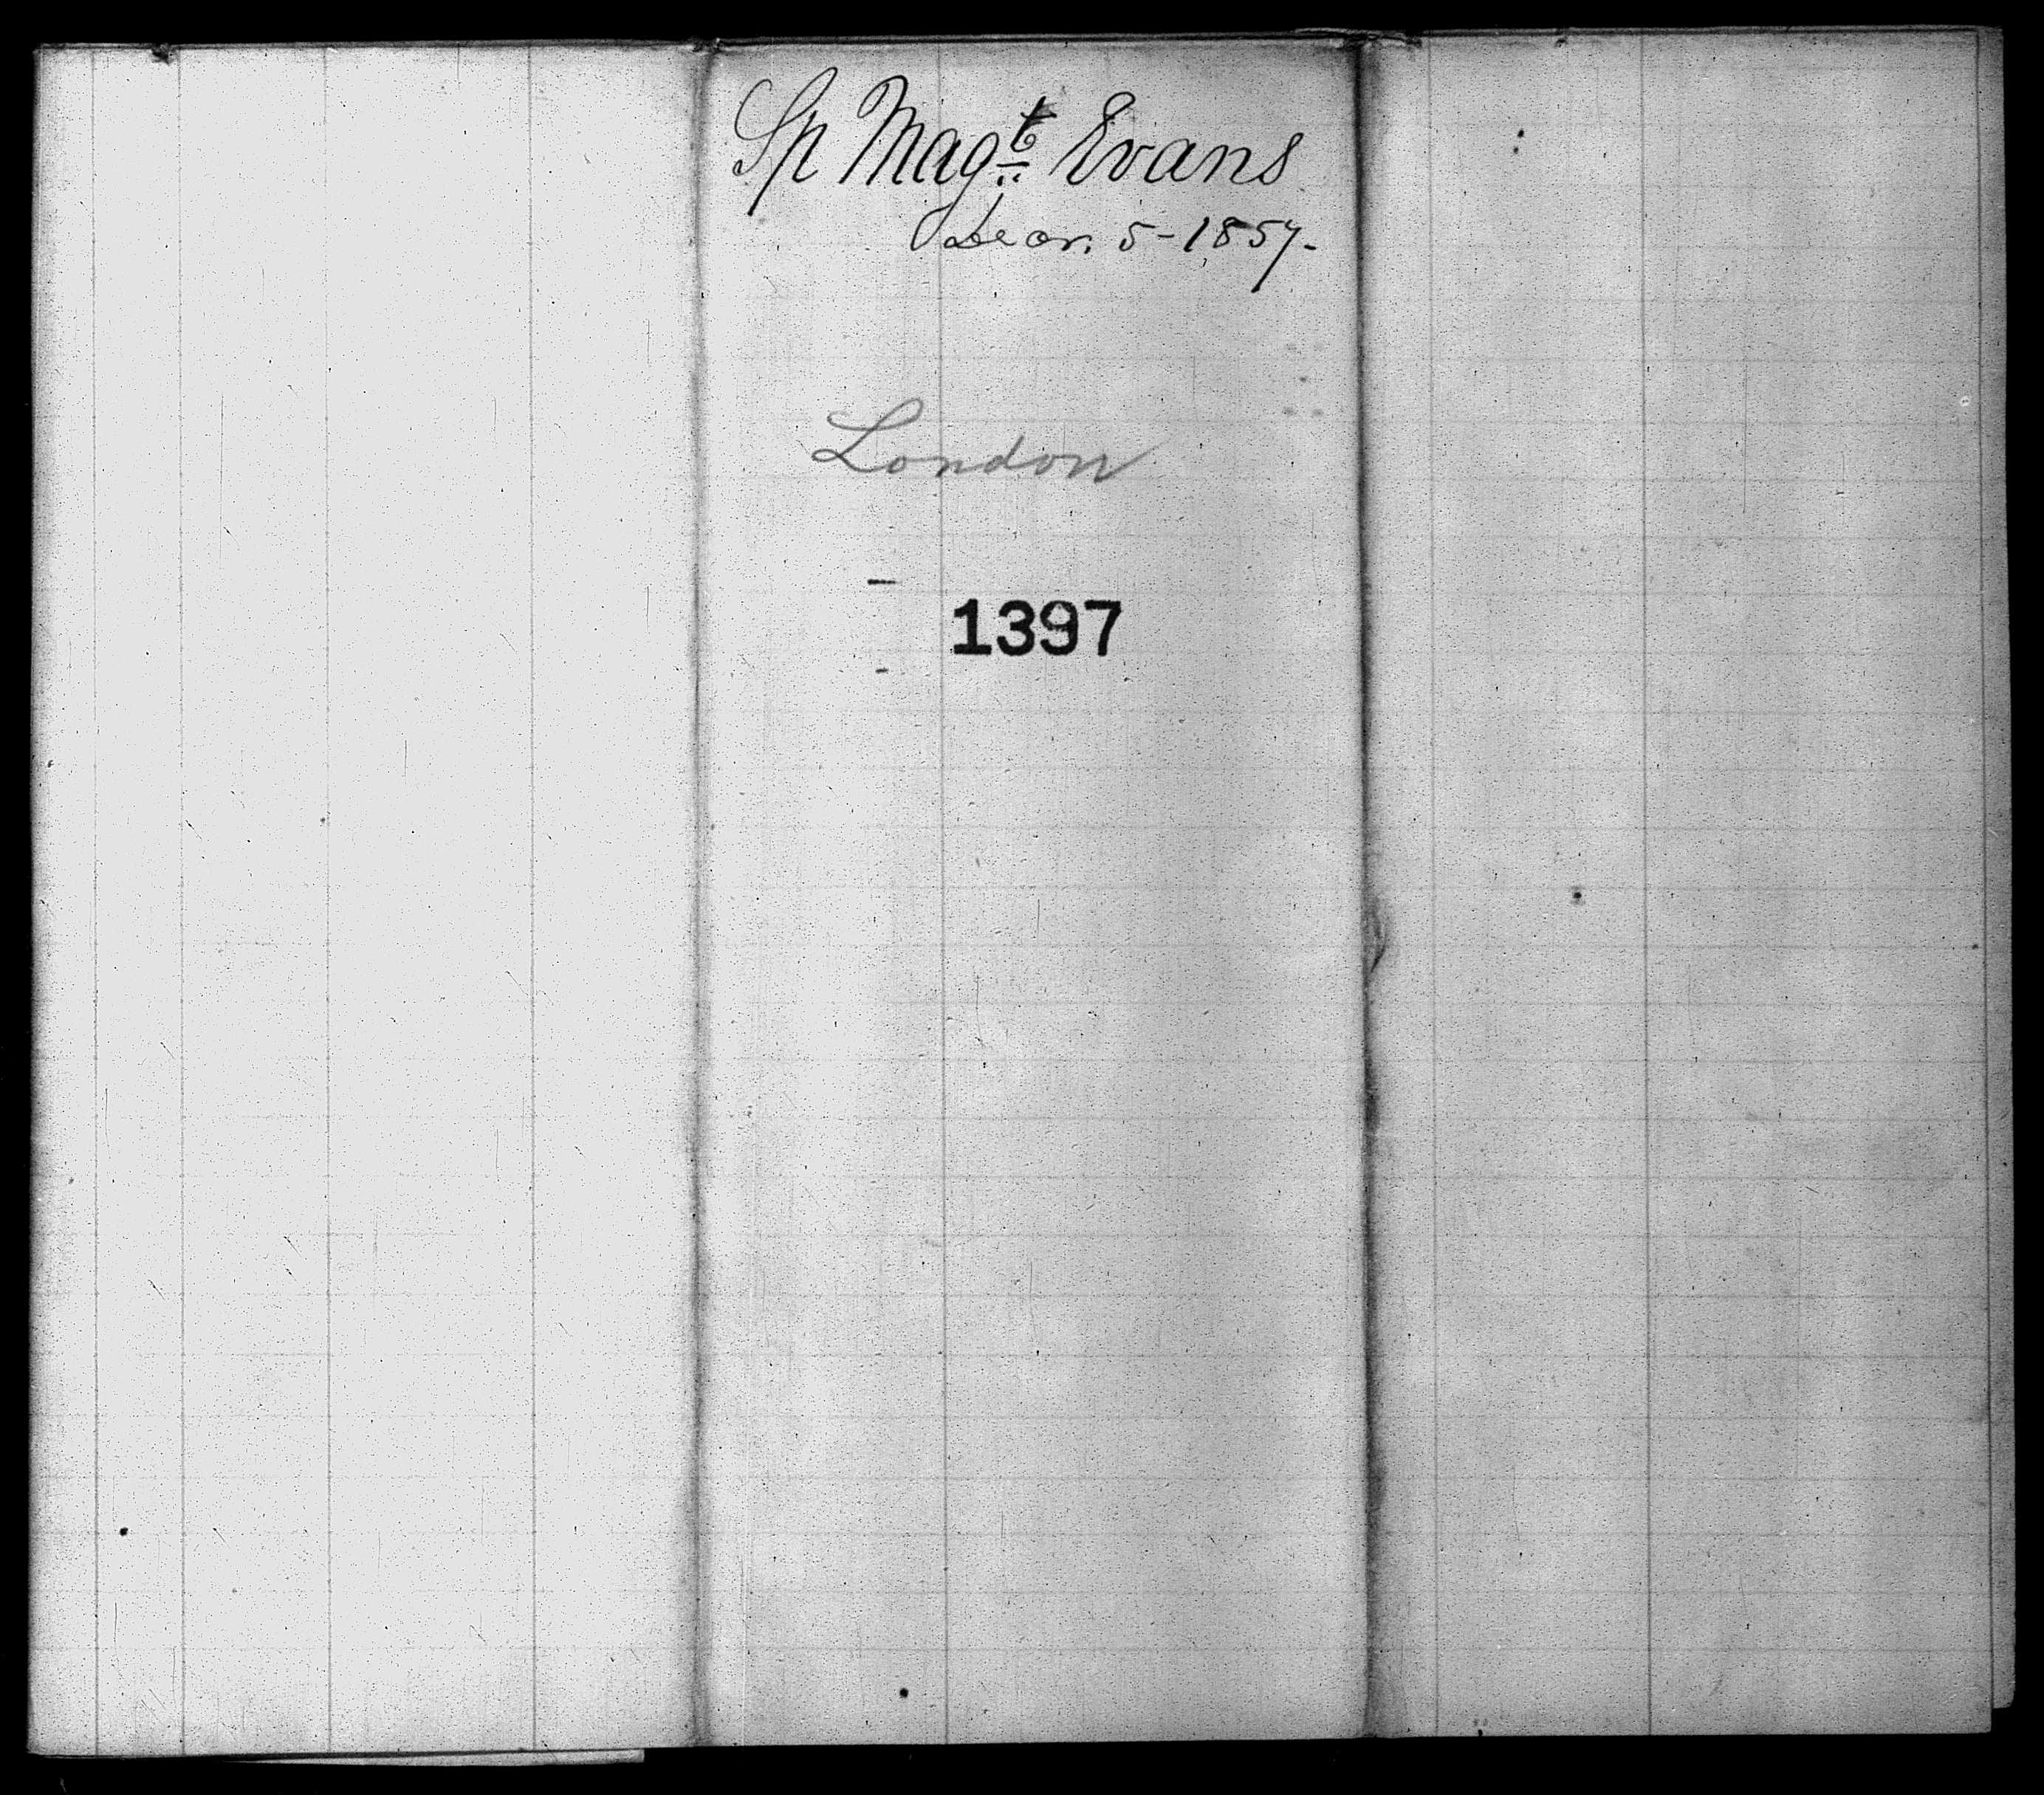 Sp Magt Evans
Decr. 5-1857.
London
1397